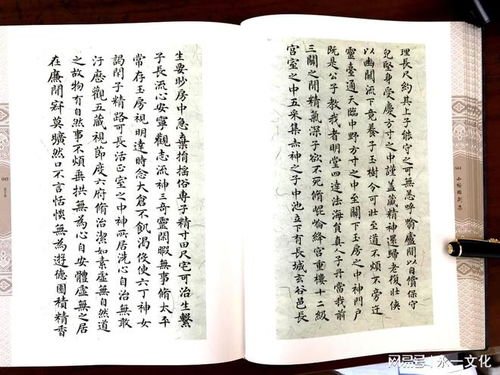 理長尺約其上子能守之可無恙呼噏廬間以自償保守
兒堅身受慶方寸之中謹盖藏精神還歸老復壯俠
以幽闕流下竟養子玉樹令可壯至道不煩不旁迕
靈臺通天臨中野方寸之中至關下玉房之中神門戶
既是公子教我者明堂四達法海負真人子丹當我前
三關之間精氣深子欲不死脩崐崘絳宮重樓十二級
宮室之中五采集赤神之子中池立下有長城玄谷邑長
生要眇房中急棄捐搖俗專子精寸田尺宅可治生繫
子長流心安寧觀志流神三奇靈閑暇無事脩太平
常存玉房視明達時念大倉不飢渴役使六丁神女
謁閉子精路可長活正室之中神所居洗心自治無敢
汙歷觀五藏視節度六府脩治潔如素虛無自然道
之故物有自然事不煩垂拱無為心自安體虛無之居
在廉間寂莫曠然口不言恬惔無為遊德園積精香
网易号 | 永一文化